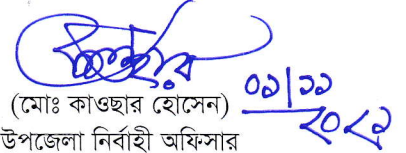 কাওছার
০১|১১
২০২১
(মোঃ কাওছার হোসেন)
উপজেলা নির্বাহী অফিসার